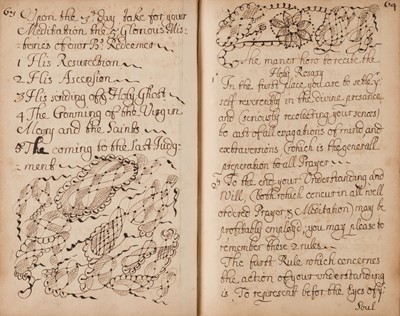 63
Upon the 3d day take for your
Meditation the 5 Glorious Mis-
teries of our Bd Redeemer
1 His Resurrection
2 His Ascension
3 His sending of ye Holy Ghost
4 The Crowning of the Virgin
Mary and the Saints
5 The coming to the Last Judg-
ment
64
The maner how to recite the
Holy Rosary
1
In the first place you are to settle yr
self reverently in the divine presance
and seriously recolecting your sences
to cast of all evagations of mind and
extraversions (which is the generall
preperation to all Prayer
2
To the end your Understanding and
Will, (both which concur in all well
ordered Prayer & Meditation) may be
profitably employ'd; you may please to
remember these 2 rules
The first Rule which concernes
the action of your understanding
is To represent before the Eyes of yr
Soul